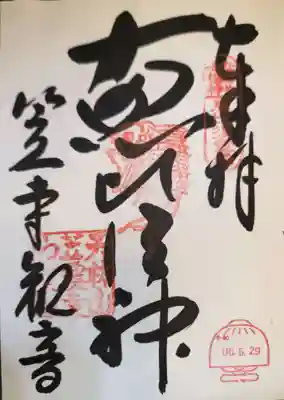 奉拝
恵比須神
笠寺観音
06. 6. 29